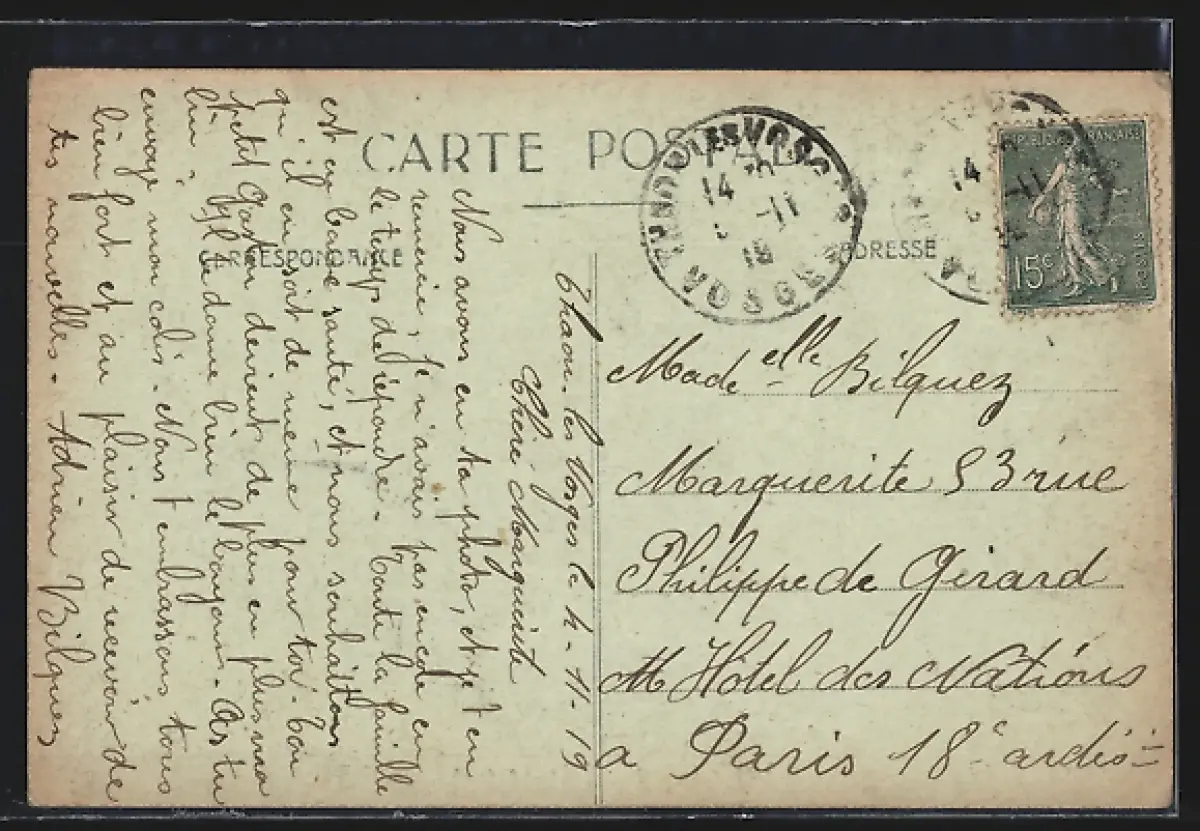 CARTE POSTALE
CORRESPONDANCE
ADRESSE
RÉPUBLIQUE FRANÇAISE
15c
POSTES
THAON LES VOSGES
14
-11
19
VOSGES
14
-11
Thaon-les Vosges le 4-11-19
Chère Marguerite
Nous avons eu ta photo, et je t'en
remercie, je n'avais pas encore eu
le temps de répondre. Toute la famille
est en bonne santé, et nous souhaitons
qu'il en soit de même pour toi. Ton
petit Gaston devient de plus en plus
lui donne bien le As tu
envoyé mon colis. Nous t'embrassons tous
bien fort et au plaisir de recevoir de
tes nouvelles. Adrien Bilquez
Made elle Bilquez
Marguerite 53 rue
Philippe de Girard
M Hôtel des Nations
a Paris 18e ardis-